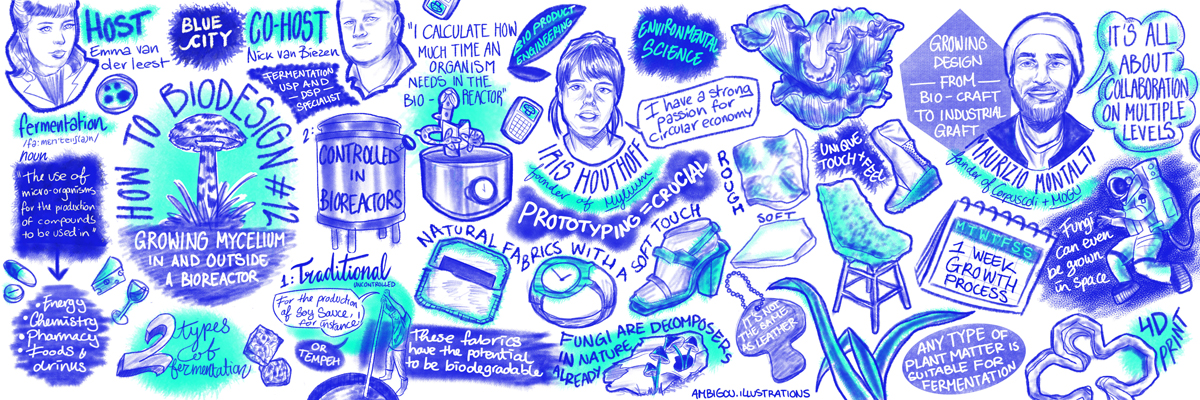 HOST
Emma van
der leest
BLUE
CITY
CO-HOST
Nick van Biezen
FERMENTATION
USP AND
DSP
SPECIALIST
fermentation
noun
"The use of
micro-organisms
for the production
of compounds
to be used in"
• Energy
• Chemistry
• Pharmacy
• Foods &
drinks
HOW TO BIODESIGN #12
GROWING MYCELIUM
IN AND OUTSIDE
A BIOREACTOR
2 types
of
fermentation
1: Traditional
UNCONTROLLED
For the production
of Soy Sauce,
for instance
OR
TEMPEH
2:
CONTROLLED
IN
BIOREACTORS
"I CALCULATE HOW
MUCH TIME AN
ORGANISM
NEEDS IN THE
BIO-REACTOR"
BIO PRODUCT
ENGINEERING
ENVIRONMENTAL
SCIENCE
I have a strong
passion for
circular economy
IRIS HOUTHOFF
founder of Mylium
PROTOTYPING = CRUCIAL
NATURAL FABRICS WITH A
SOFT TOUCH
These fabrics
have the potential
to be biodegradable
FUNGI ARE DECOMPOSERS
IN NATURE,
ALREADY
ROUGH
SOFT
IT'S NOT
THE SAME
AS LEATHER
UNIQUE
TOUCH + FEEL
AMBIGOU.ILLUSTRATIONS
GROWING
DESIGN
— FROM —
BIO-CRAFT
TO INDUSTRIAL
GRAFT
MAURIZIO MONTALTI
founder of Corpuscoli + MOGU
IT'S ALL
ABOUT
COLLABORATION
ON MULTIPLE
LEVELS
M T W T F S S
1 WEEK
GROWTH
PROCESS
Fungi
can even
be grown
in space
ANY TYPE OF
PLANT MATTER IS
SUITABLE FOR
FERMENTATION
4D
PRINT